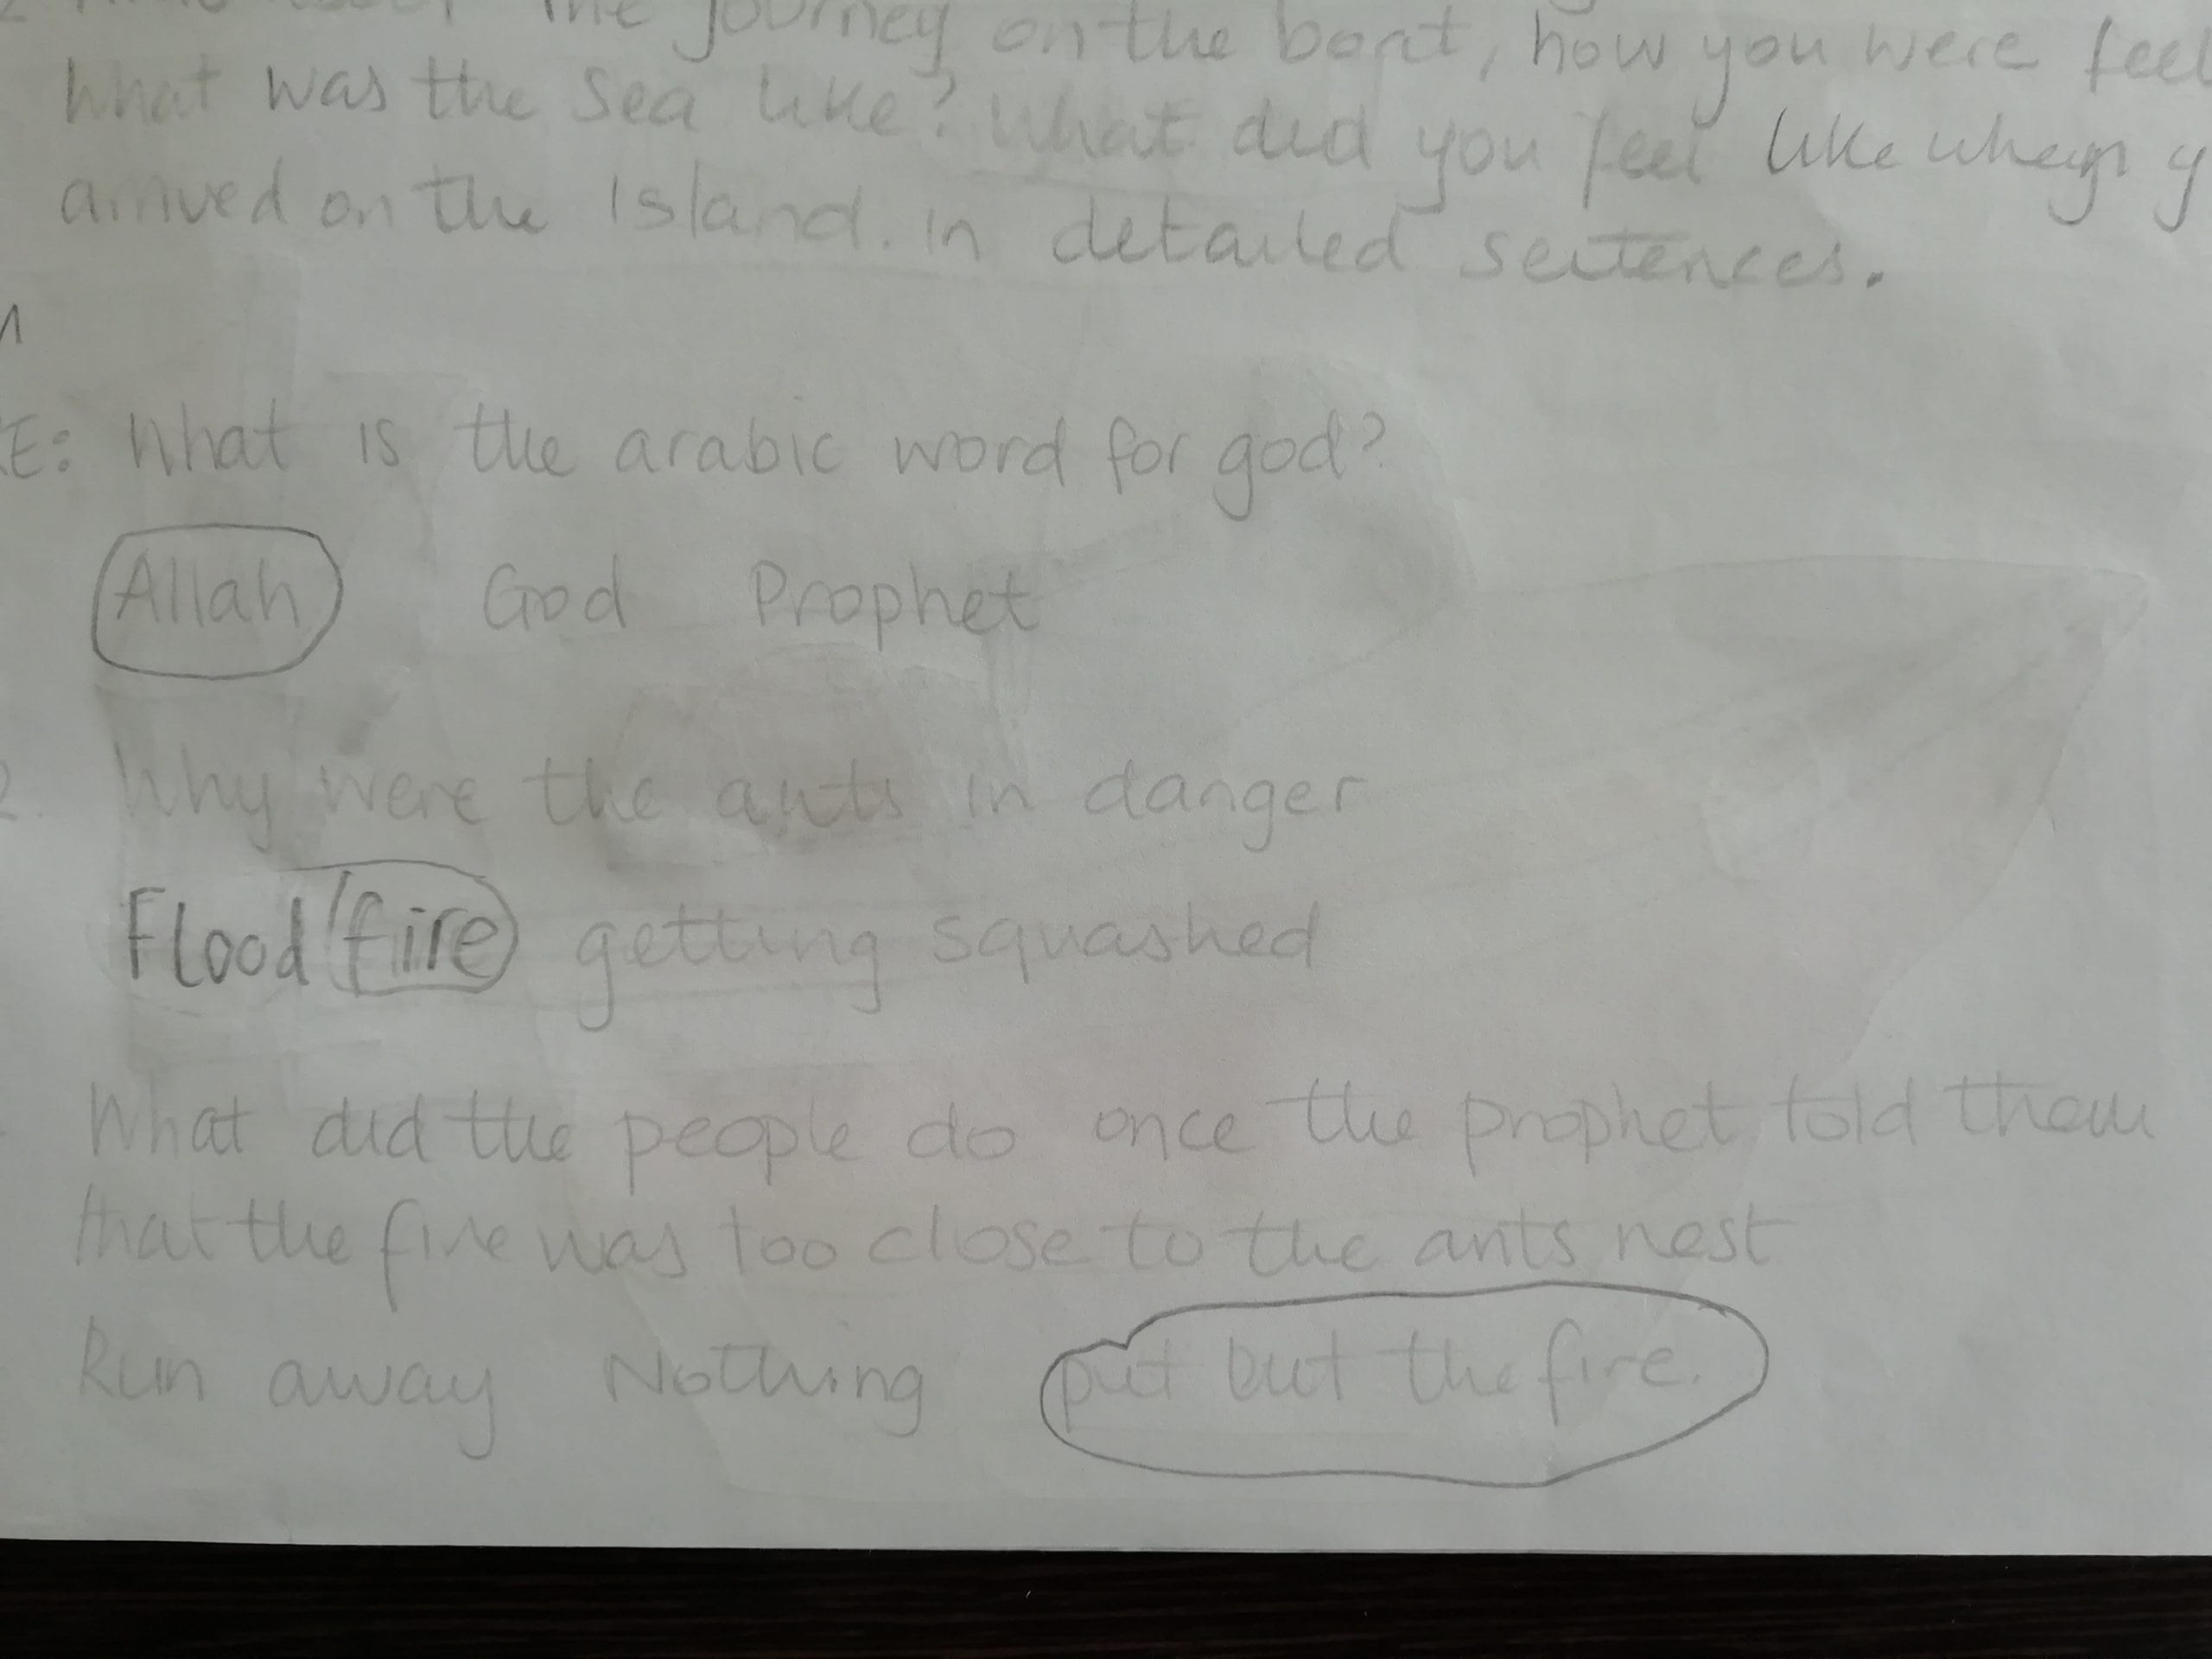 the journey on the boat, how you were feel
What was the sea like? What did you feel like when y
arrived on the Island. in detailed sentences.
E: What is the arabic word for god?
Allah God Prophet
2. Why were the ants in danger
Flood/fire getting squashed
What did the people do once the prophet told them
that the fire was too close to the ants nest
Run away Nothing put but the fire.